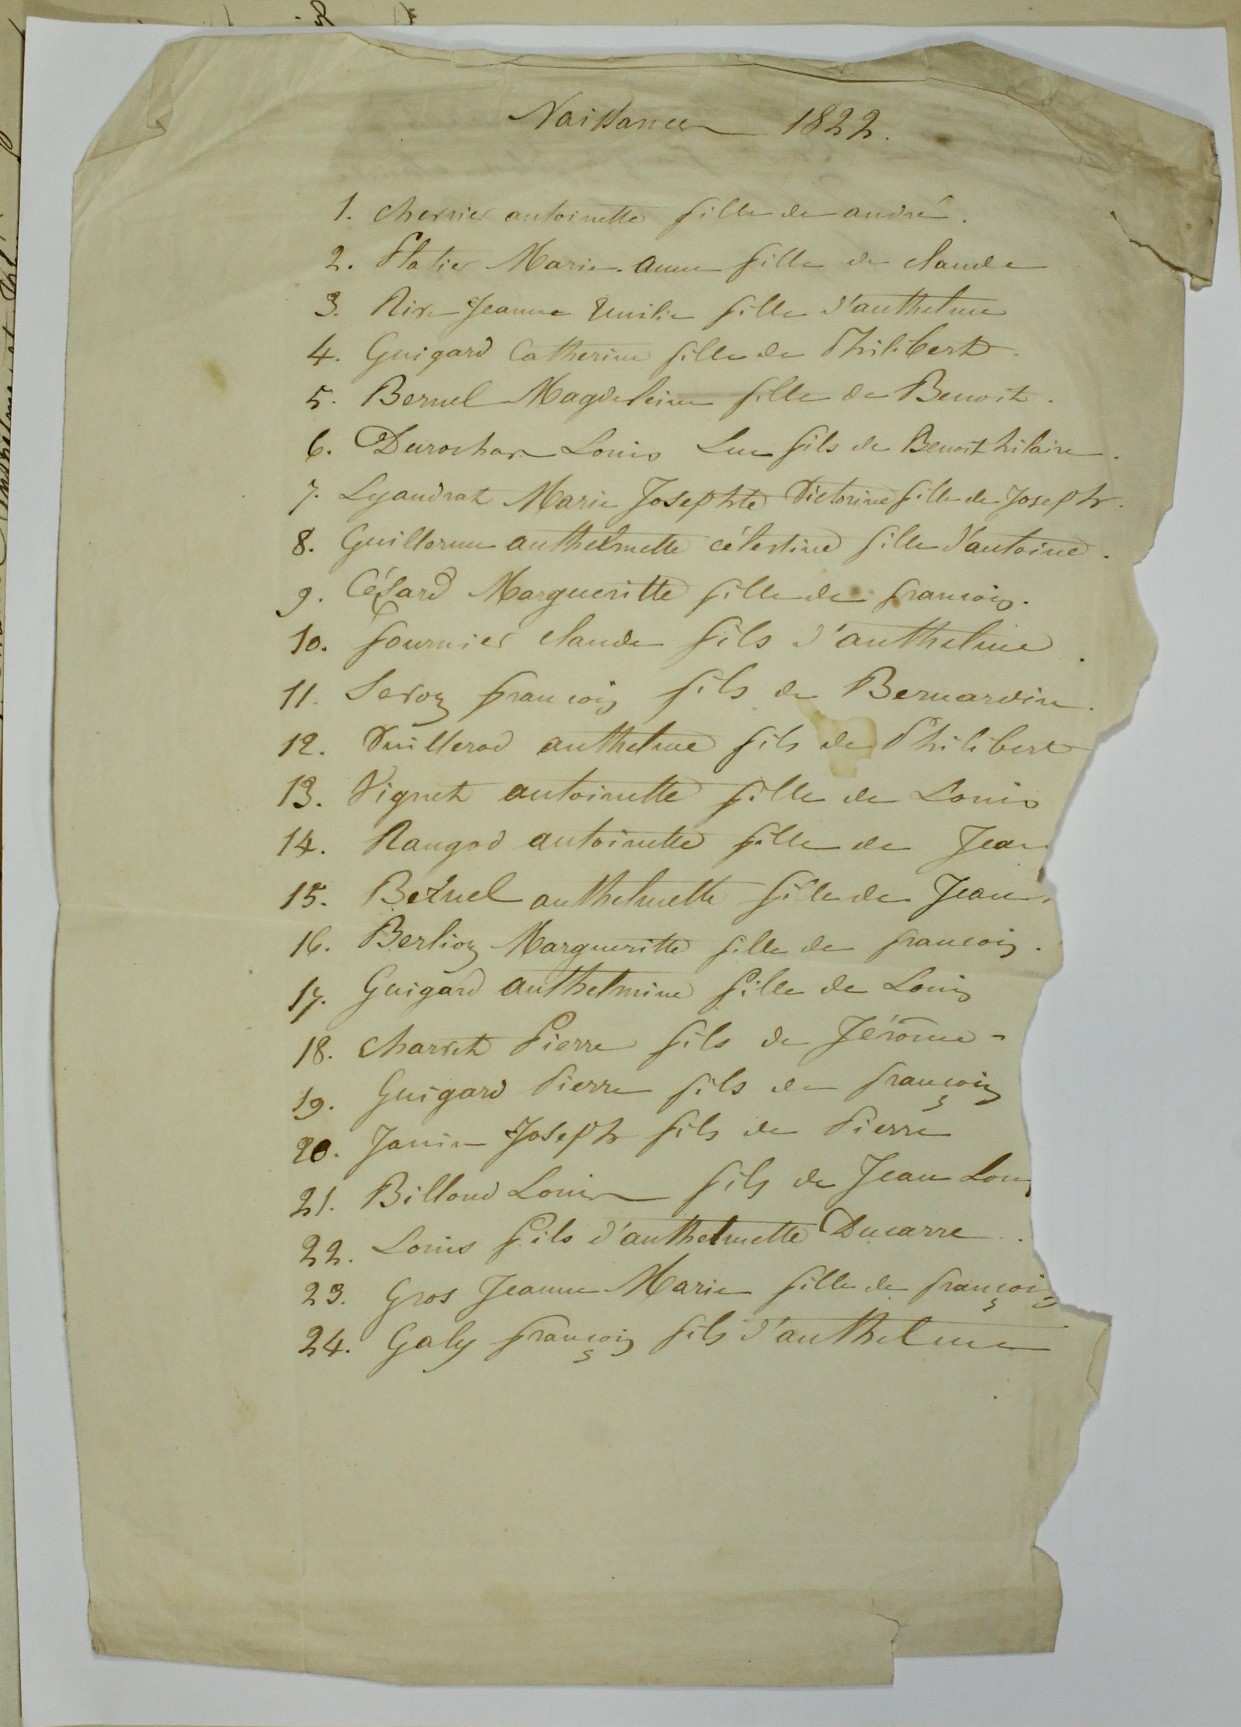 Naissances 1822.
1. Cherrier antoinette fille de andré.
2. Platier Marie anne fille de claude
3. Rive Jeanne Emilie fille d'anthelme
4. Guigard Catherine fille de Philibert.
5. Bernel Magdeleine fille de Benoit.
6. Durochat Louis Luc fils de Benoit hilaire.
7. Lyandrat Marie Josephte Victorine fille de Joseph.
8. Guillerme anthelmette célestine fille d'antoine.
9. Césard Margueritte fille de françois.
10. fournier claude fils d'anthelme.
11. Seroz françois fils de Bernardin.
12. Vuillerod anthelme fils de Philibert
13. Vignet antoinette fille de Louis
14. Rangod antoinette fille de Jean
15. Beznel anthelmette fille de Jean.
16. Berlioz Margueritte fille de françois.
17. Guigard anthelmine fille de Louis
18. charvet Pierre fils de Jérôme -
19. Guigard Pierre fils de françois
20. Janin Joseph fils de Pierre
21. Billoud Louis fils de Jean Lou
22. Louis fils d'anthelmette Ducarre.
23. Gros Jeanne Marie fille de françois
24. Galy françois fils d'anthelme